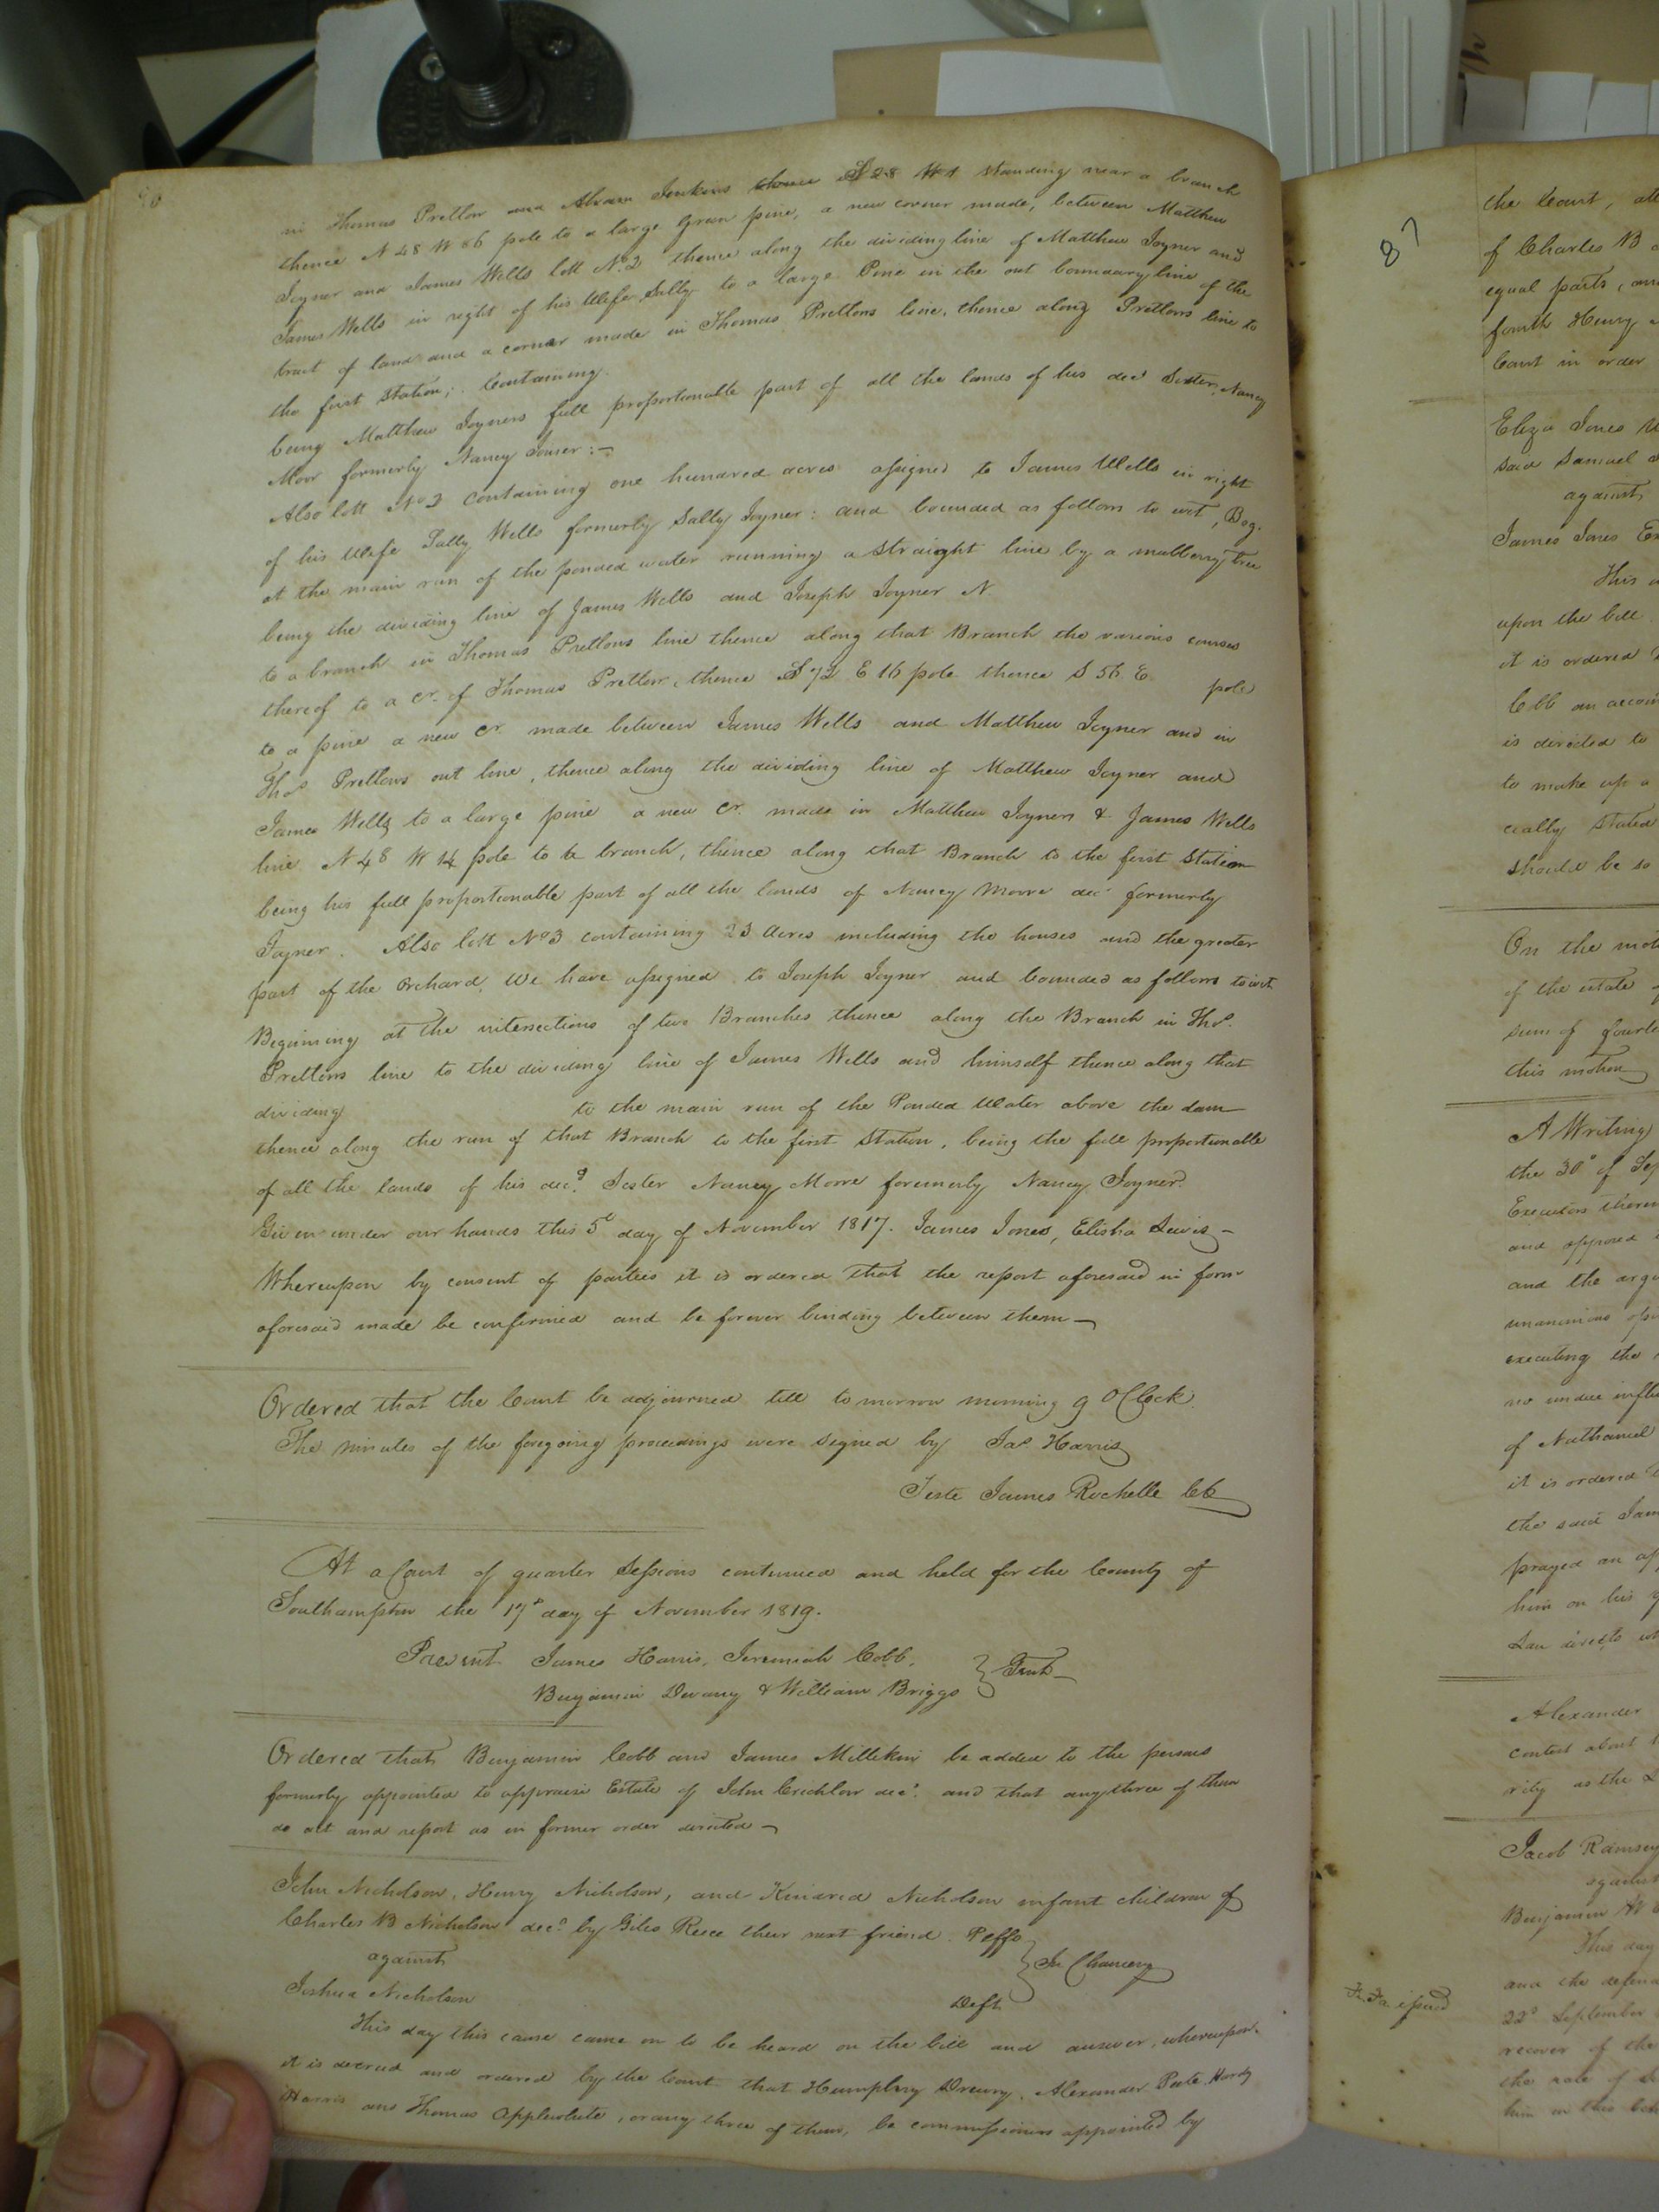 in Thomas Pretlow and Abram Jenkins thence S 28 W 1 standing near a branch
thence N 48 W 86 pole to a large Green pine, a new corner made, between Matthew
Joyner and James Wells lott No 2 thence along the dividing line of Matthew Joyner and
James Wells in right of his Wife Sally to a large Pine in the out boundary line of the
tract of land and a corner made in Thomas Pretlows line, thence along Pretlows line to
the first Station; Containing
being Matthew Joyners full proportionable part of all the lands of his decd Sister, Nancy
Moor formerly Nancy Joiner:—
Also lott No 2 containing one hundred acres assigned to James Wells in right
of his Wife Sally Wells formerly Sally Joyner: and bounded as follows to wit, Beg.
at the main run of the ponded water running a straight line by a mulberry tree
being the dividing line of James Wells and Joseph Joyner N
to a branch in Thomas Pretlows line thence along that Branch the various courses
thereof to a Cr. of Thomas Pretlow, thence S 72 E 16 pole thence S 56 E pole
to a pine a new Cr. made between James Wells and Matthew Joyner and in
Thos Pretlows out line, thence along the dividing line of Matthew Joyner and
James Wells to a large pine a new Cr. made in Matthew Joyners & James Wells
line N 48 W 14 pole to a branch, thence along that Branch to the first Station
being his full proportionable part of all the lands of Nancy Moore decd formerly
Joyner. Also lott No 3 containing 23 Acres including the houses and the greater
part of the Orchard, We have assigned to Joseph Joyner and bounded as follows to wit
Beginning at the intersections of two Branches thence along the Branch in Thos.
Pretlows line to the dividing line of James Wells and himself thence along that
dividing to the main run of the Ponded Water above the dam
thence along the run of that Branch to the first Station, being the full proportionable
of all the lands of his decd. Sister Nancy Moore foremerly Nancy Joyner.
Given under our hands this 5th day of November 1817. James Jones, Elisha Lewis—
Whereupon by consent of parties it is ordered that the report aforesaid in form
aforesaid made be confirmed and be forever binding between them—
Ordered that the Court be adjourned till to morrow morning 9 OClock.
The minutes of the foregoing proceedings were signed by Jas Harris
Teste James Rochelle CC
At a Court of quarter Sessions continued and held for the County of
Southampton the 17th day of November 1819.
Present James Harris, Jeremiah Cobb,
Benjamin Devany & William Briggs } Gent—
Ordered that Benjamin Cobb and James Millikin be added to the persons
formerly appointed to appraise Estate of John Crichlow decd. and that any three of them
do act and report as in former order directed—
John Nicholson, Henry Nicholson, and Kindred Nicholson infant children of
Charles B Nicholson decd. by Giles Reece their next friend. Plffs
against } In Chancery
Joshua Nicholson Deft
This day this cause came on to be heard on the bill and answer, whereupon
it is decreed and ordered by the Court that Humphrey Drewry, Alexander Pete, Hardy
Harris and Thomas Applewhite, or any three of them, be commissioners appointed by
87
the Court,
of Charles B
equal parts,
fourth Henry
Court in order
Eliza Jones
said Samuel
against
James Jones
This
upon the bill
it is ordered
Cobb an
is directed to
to make up a
cially stated
should be so
On the
of the estate
sum of
this motion
A Writing
the 30th of
Executors
and opposed
and the
unanimous
executing the
no undue
of Nathaniel
it is ordered
the said
prayed an
him on his
Law directs
Alexander
contest about
rity as the
Jacob Ramsey
against
Benjamin W
This day
Fi. Fa. issued
and the
22d September
recover of the
the sale of
him in this